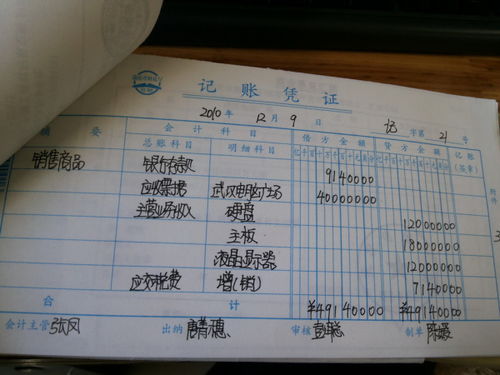 记账凭证
2010年12月9日 记字第21号
摘要 会计科目 借方金额 贷方金额 记账(签章)
总账科目 明细科目
销售商品 银行存款 9140000
应收票据 武汉 广场 40000000
主营业务收入 硬盘 12000000
主板 18000000
液晶显示器 12000000
应交税费 增(销) 7140000
合计 ¥49140000 ¥49140000
会计主管 张凤 出纳 唐 穗 审核 聪 制单 陈